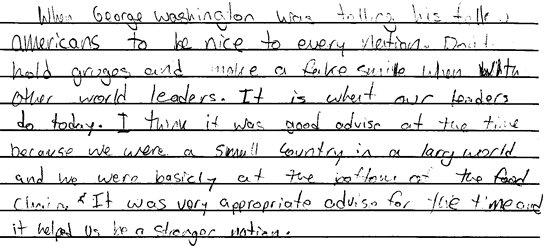 When George washington was telling his fellow
americans to be nice to every nation. Don't
hold gruges and make a fake smile when with
other world leaders. It is what our leaders
do today. I think it was good advise at the time
because we were a small country in a larg world
and we were basicly at the bottom of the food
chain. It was very appropriate advise for the time and
it helped us be a stronger nation.